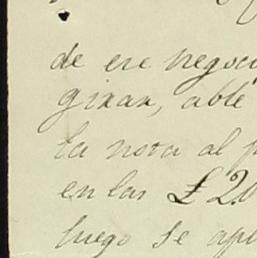 de ese negoci
giran, able
la nota al p
en las £ 20
luego se ape